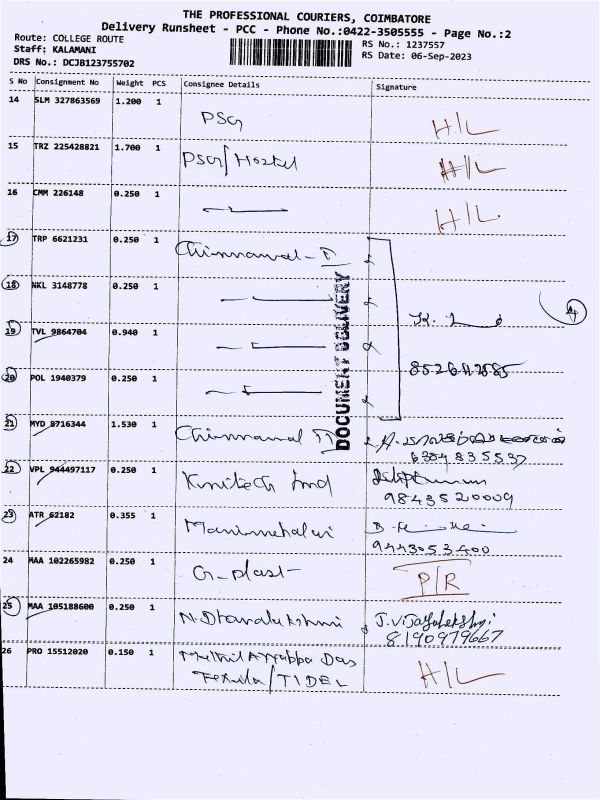 THE PROFESSIONAL COURIERS, COIMBATORE
Delivery Runsheet - PCC - Phone No.:0422-3505555 - Page No.:2
Route: COLLEGE ROUTE
Staff: KALAMANI
DRS No.: DCJB123755702
RS No.: 1237557
RS Date: 06-Sep-2023
S No Consignment No Weight PCS Consignee Details Signature
14 SLM 327863569 1.200 1 PSG H/L
15 TRZ 225428821 1.700 1 PSG/Hostel H/L
16 CMM 226148 0.250 1 H/L
17 TRP 6621231 0.250 1
18 NKL 3148778 0.250 1
19 TVL 9864704 0.940 1
20 POL 1940379 0.250 1
DOCUMENT DELIVERY
21 MYD 8716344 1.530 1
6384835537
22 VPL 944497117 0.250 1 Knitech Ind
9843520009
23 ATR 62182 0.355 1 Manimehalai
9443053400
24 MAA 102265982 0.250 1 G-plast P/R
25 MAA 105188600 0.250 1 N.Dhanalakshmi J.Vijayalekshmi
8190979667
26 PRO 15512020 0.150 1 Das
/TIDEL H/L